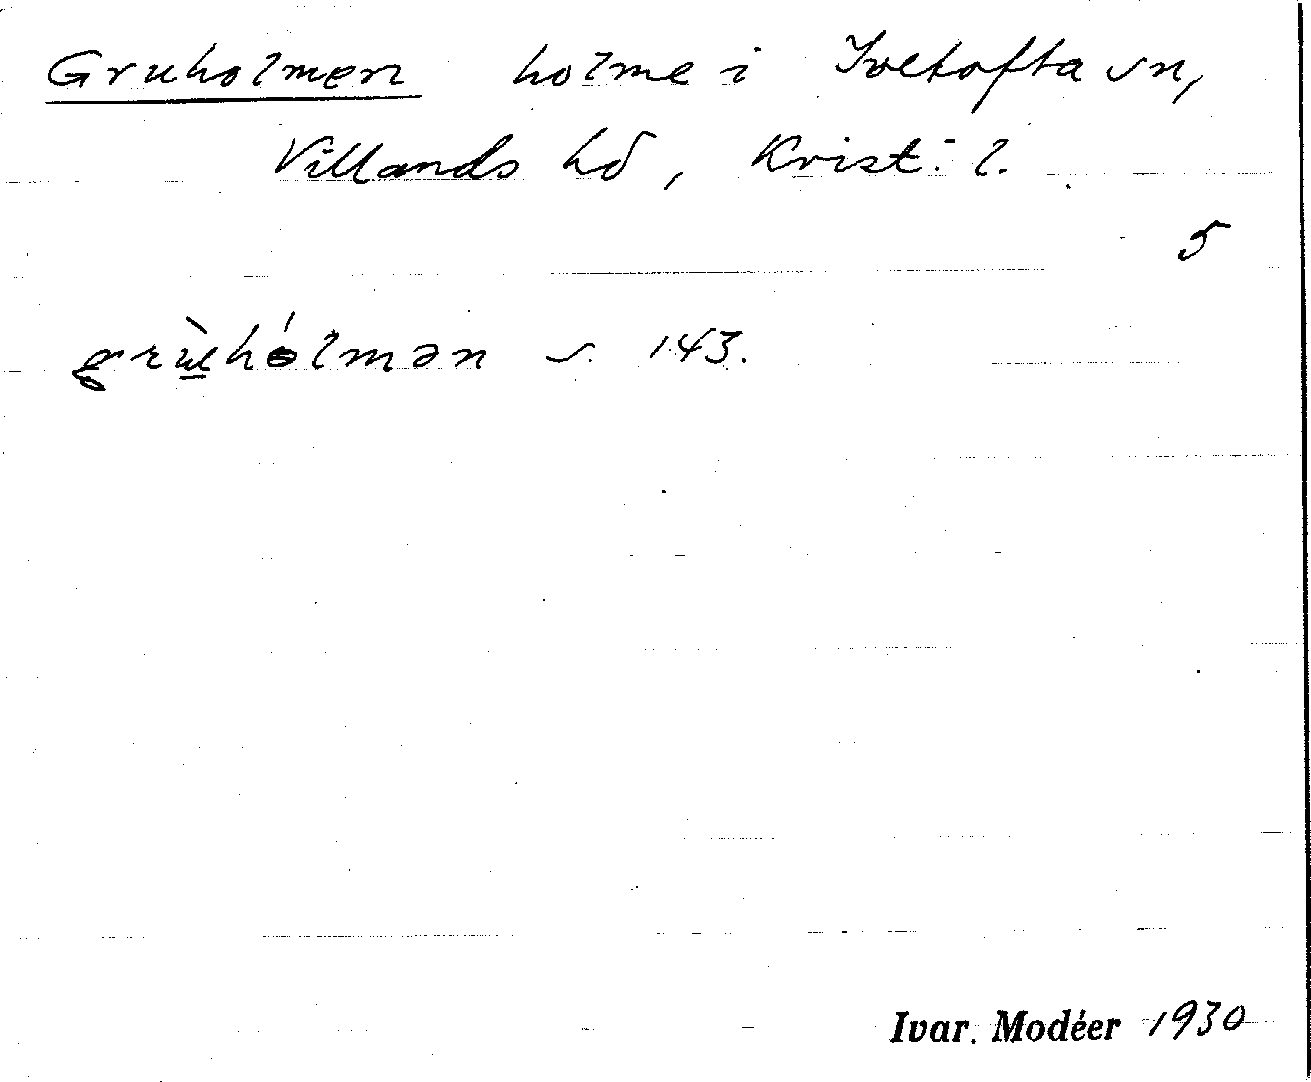 Gruholmen holme i Ivetofta sn,
Villands hd, Krist: l.
5
grùhólmən s. 143.
Ivar. Modéer 1930